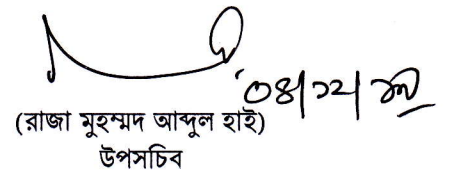 ০৪/১২/
(রাজা মুহম্মদ আব্দুল হাই)
উপসচিব